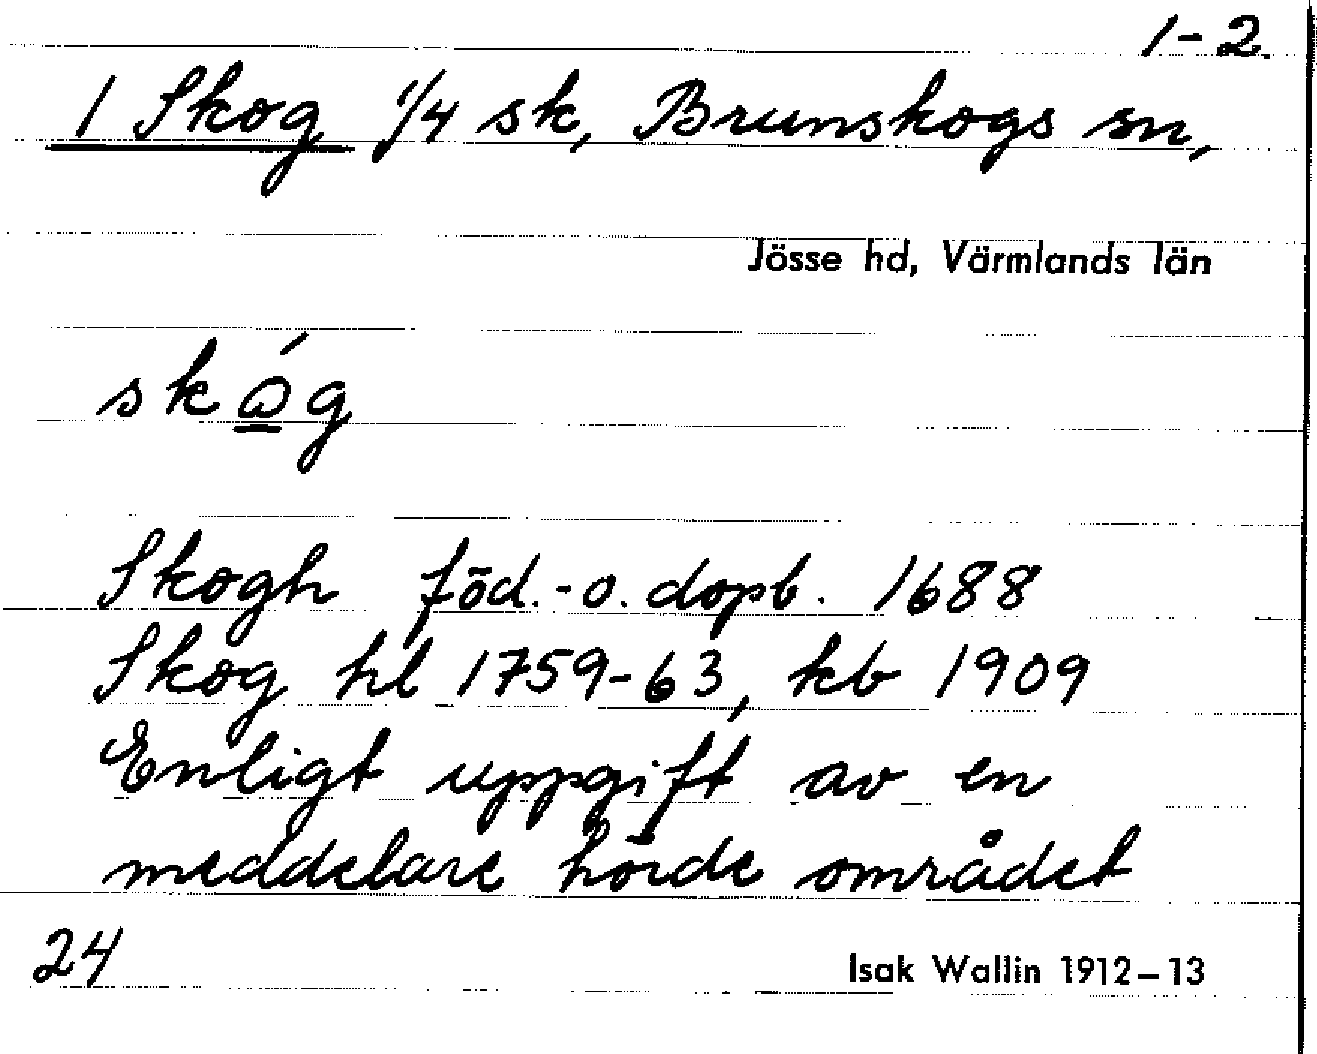 1-2.
1 Skog 1/4 sk, Brunskogs sn,
Jösse hd, Värmlands län
skǫ́g
Skogh föd.-o. dopb. 1688
Skog hl 1759-63, kb 1909
Enligt uppgift av en
meddelare hörde området
24
Isak Wallin 1912–13